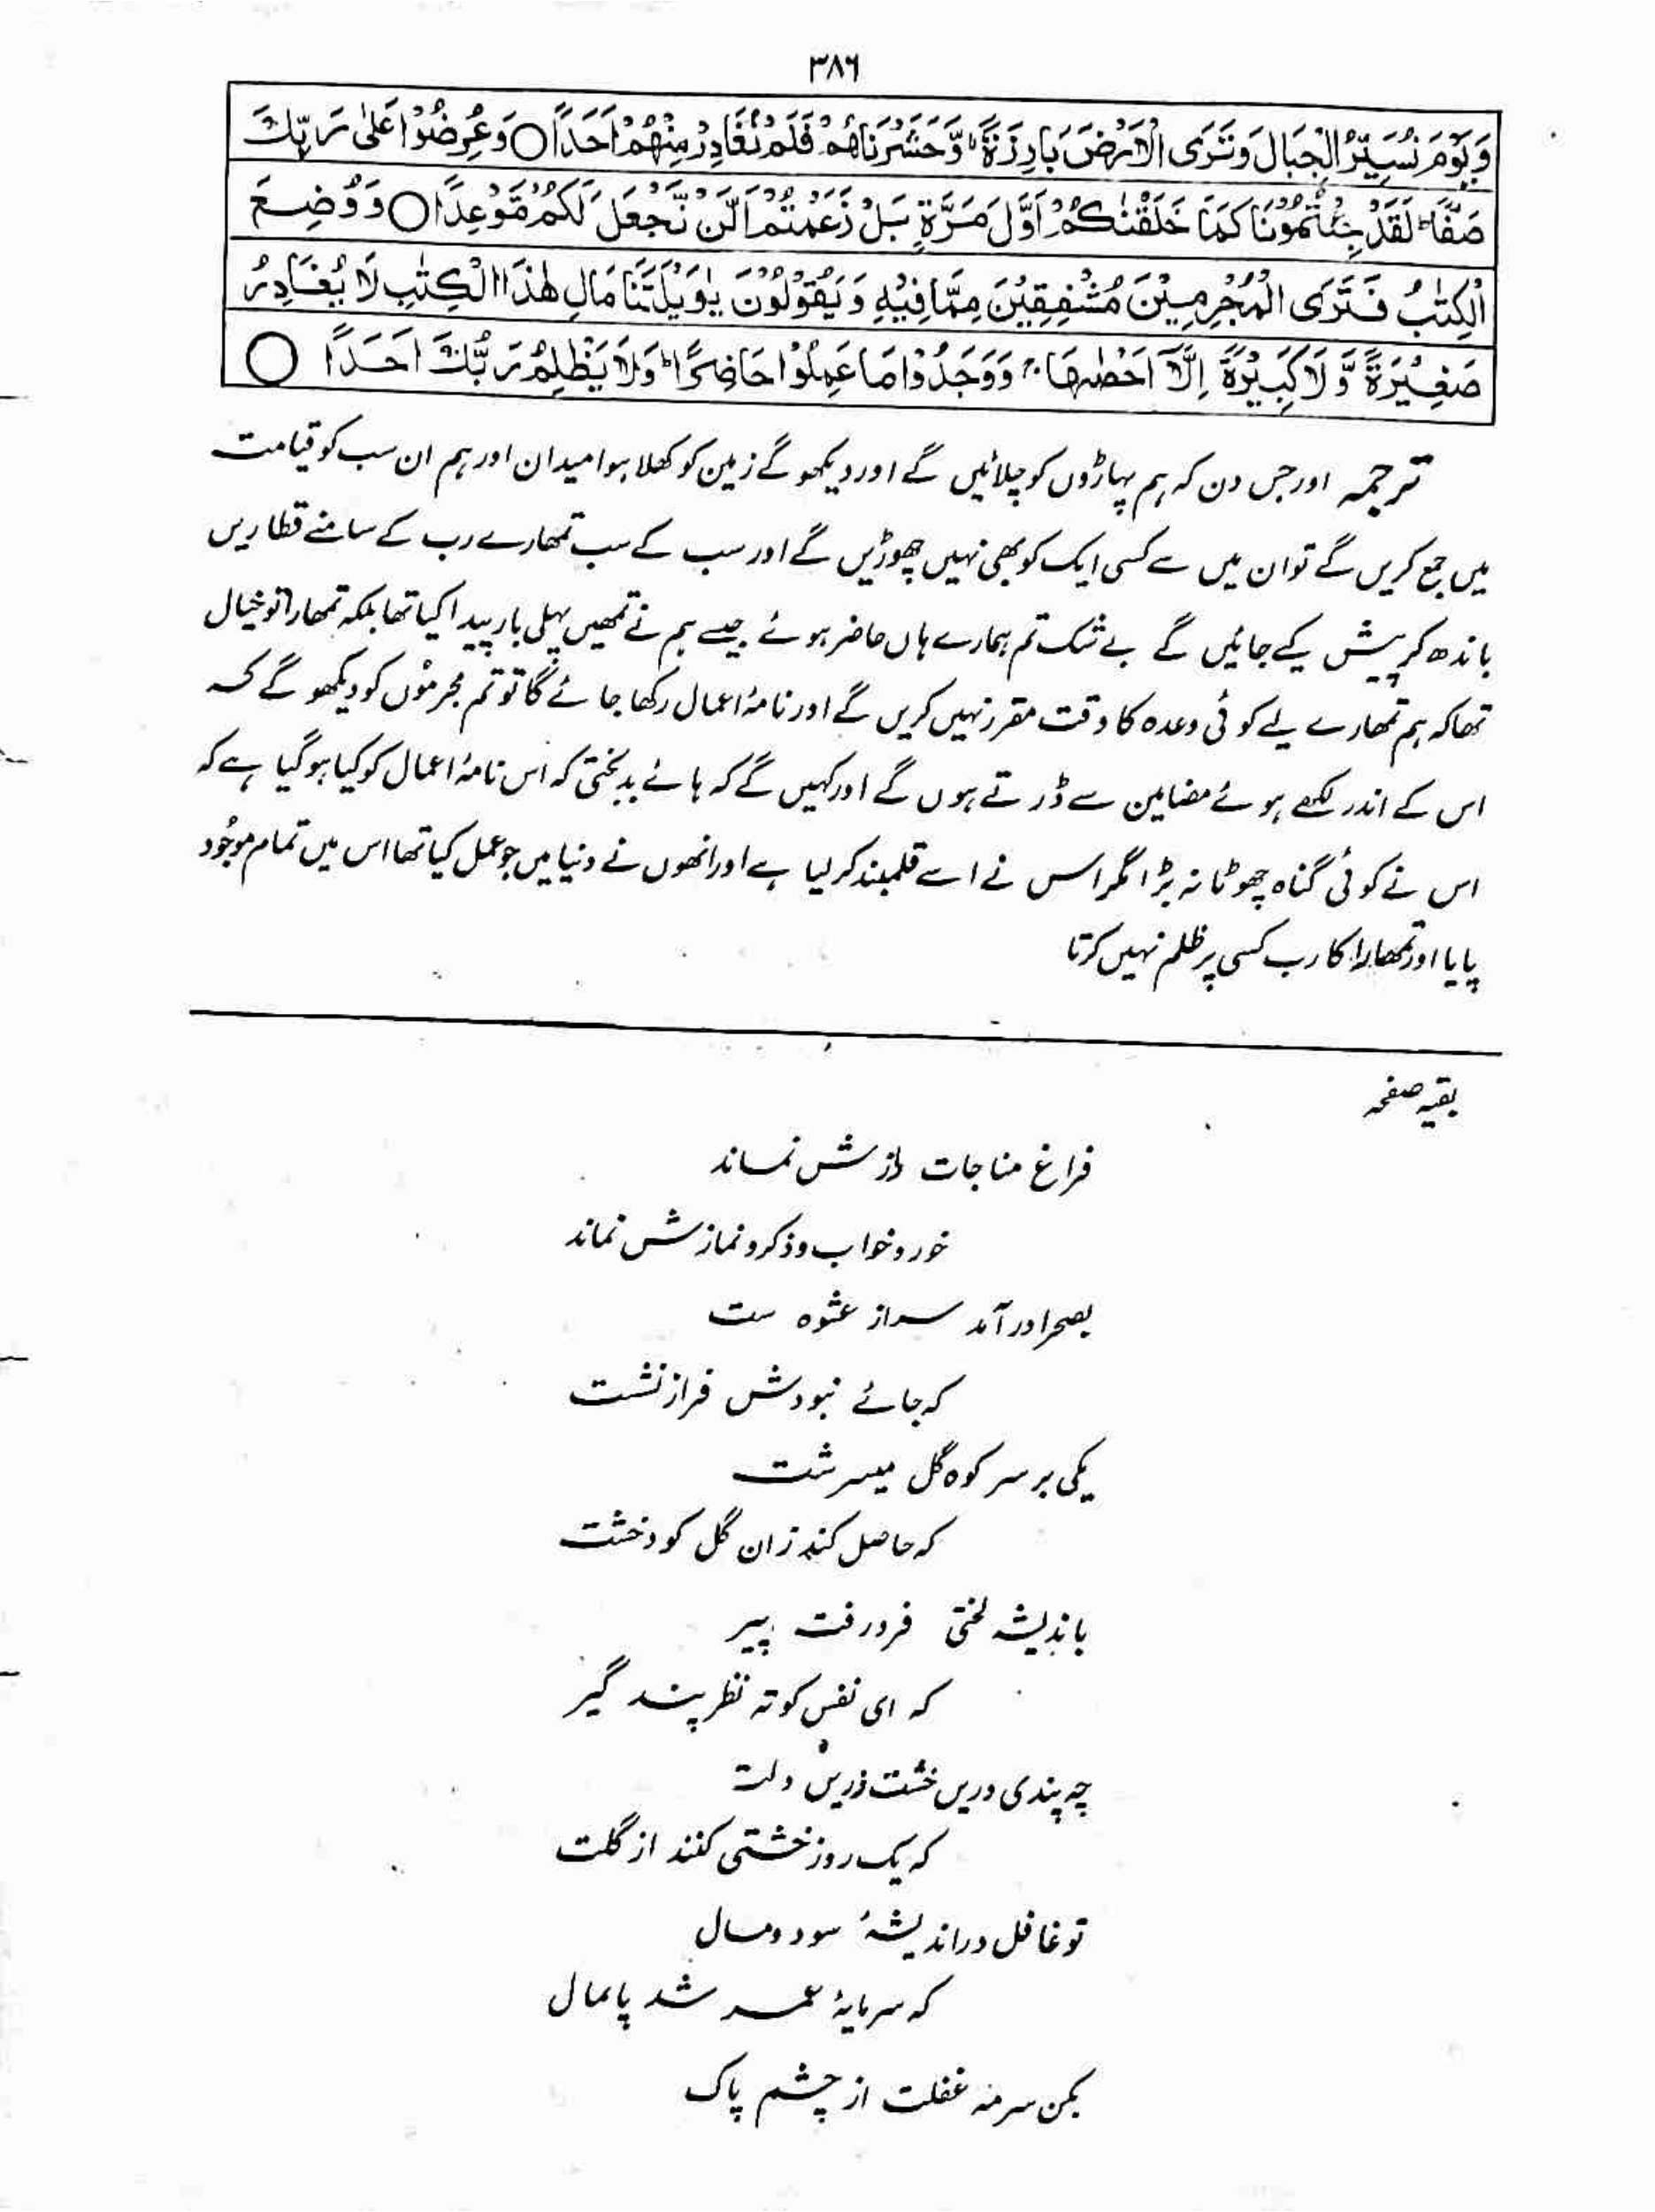 ۳۸۶
وَيَوْمَ نُسَيِّرُ الْجِبَالَ وَتَرَى الْاَرْضَ بَارِزَةً ۙ وَّحَشَرْنَاهُمْ فَلَمْ نُغَادِرْ مِنْهُمْ اَحَدًا ○ وَعُرِضُوْا عَلٰى رَبِّكَ
صَفًّا ؕ لَقَدْ جِئْتُمُوْنَا كَمَا خَلَقْنٰكُمْ اَوَّلَ مَرَّةٍ بَلْ زَعَمْتُمْ اَلَّنْ نَّجْعَلَ لَكُمْ مَّوْعِدًا ○ وَوُضِعَ
الْكِتٰبُ فَتَرَى الْمُجْرِمِيْنَ مُشْفِقِيْنَ مِمَّا فِيْهِ وَيَقُوْلُوْنَ يٰوَيْلَتَنَا مَالِ هٰذَا الْكِتٰبِ لَا يُغَادِرُ
صَغِيْرَةً وَّلَا كَبِيْرَةً اِلَّآ اَحْصٰىهَا ۚ وَوَجَدُوْا مَا عَمِلُوْا حَاضِرًا ؕ وَلَا يَظْلِمُ رَبُّكَ اَحَدًا ○
ترجمہ اور جس دن کہ ہم پہاڑوں کو چلائیں گے اور دیکھو گے زمین کو کھلا ہوا میدان اور ہم ان سب کو قیامت
میں جمع کریں گے تو ان میں سے کسی ایک کو بھی نہیں چھوڑیں گے اور سب کے سب تمھارے رب کے سامنے قطاریں
باندھ کر پیش کیے جائیں گے بے شک تم ہمارے ہاں حاضر ہوئے جیسے ہم نے تمھیں پہلی بار پیدا کیا تھا بلکہ تمھارا تو خیال
تھا کہ ہم تمھارے لیے کوئی وعدہ کا وقت مقرر نہیں کریں گے اور نامۂ اعمال رکھا جائے گا تو تم مجرموں کو دیکھو گے کہ
اس کے اندر لکھے ہوئے مضامین سے ڈرتے ہوں گے اور کہیں گے کہ ہائے بدبختی کہ اس نامۂ اعمال کو کیا ہو گیا ہے کہ
اس نے کوئی گناہ چھوٹا نہ بڑا مگر اس نے اسے قلمبند کر لیا ہے اور انھوں نے دنیا میں جو عمل کیا تھا اس میں تمام موجُود
پایا اور تمھارا کا رب کسی پر ظلم نہیں کرتا
بقیہ صفحہ
فراغ مناجات رازش نماند
خور و خواب و ذکر و نمازش نماند
بصحرا در آمد سر از عشوہ مست
کہ جائے نبودش فراز نشست
یکی بر سر کوہ گل میسرشت
کہ حاصل کند زان گل کود خشت
باندیشہ لختی فرو رفت پیر
کہ ای نفس کوتہ نظر پند گیر
چہ پندی دریں خشت زریں دلت
کہ یک روز خشتی کنند از گلت
تو غافل در اندیشۂ سود و مال
کہ سرمایۂ عمر شد پایمال
بکن سرمہ غفلت از چشم پاک